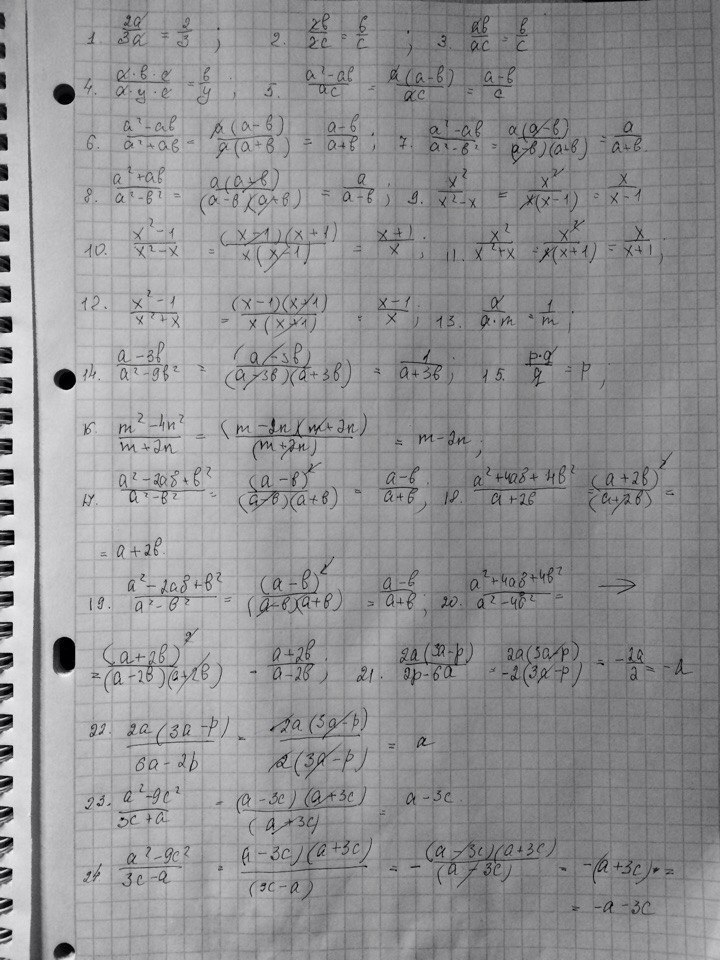 1. 2a/3a = 2/3 ; 2. 2в/2c = в/c ; 3. aв/ac = в/c
4. a·в·c/a·y·c = в/y ; 5. a²-aв/ac = a(a-в)/ac = a-в/c
6. a²-aв/a²+aв = a(a-в)/a(a+в) = a-в/a+в ; 7. a²-aв/a²-в² = a(a-в)/(a-в)(a+в) = a/a+в.
8. a²+aв/a²-в² = a(a+в)/(a-в)(a+в) = a/a-в ; 9. x²/x²-x = x²/x(x-1) = x/x-1
10. x²-1/x²-x = (x-1)(x+1)/x(x-1) = x+1/x ; 11. x²/x²+x = x²/x(x+1) = x/x+1 ;
12. x²-1/x²+x = (x-1)(x+1)/x(x+1) = x-1/x ; 13. a/a·m = 1/m ;
14. a-3в/a²-9в² = (a-3в)/(a-3в)(a+3в) = 1/a+3в ; 15. p·q/q = p ;
16. m²-4n²/m+2n = (m-2n)(m+2n)/(m+2n) = m-2n ;
17. a²-2aв+в²/a²-в² = (a-в)²/(a-в)(a+в) = a-в/a+в ; 18. a²+4aв+4в²/a+2в = (a+2в)²/(a+2в) =
= a+2в.
19. a²-2aв+в²/a²-в² = (a-в)²/(a-в)(a+в) = a-в/a+в ; 20. a²+4aв+4в²/a²-4в² = →
= (a+2в)²/(a-2в)(a+2в) = a+2в/a-2в ; 21. 2a(3a-p)/2p-6a = 2a(3a-p)/-2(3a-p) = -2a/2 = -a
22. 2a(3a-p)/6a-2p = 2a(3a-p)/2(3a-p) = a
23. a²-9c²/3c+a = (a-3c)(a+3c)/(a+3c) = a-3c.
24. a²-9c²/3c-a = (a-3c)(a+3c)/(3c-a) = -(a-3c)(a+3c)/(a-3c) = -(a+3c) =
= -a-3c